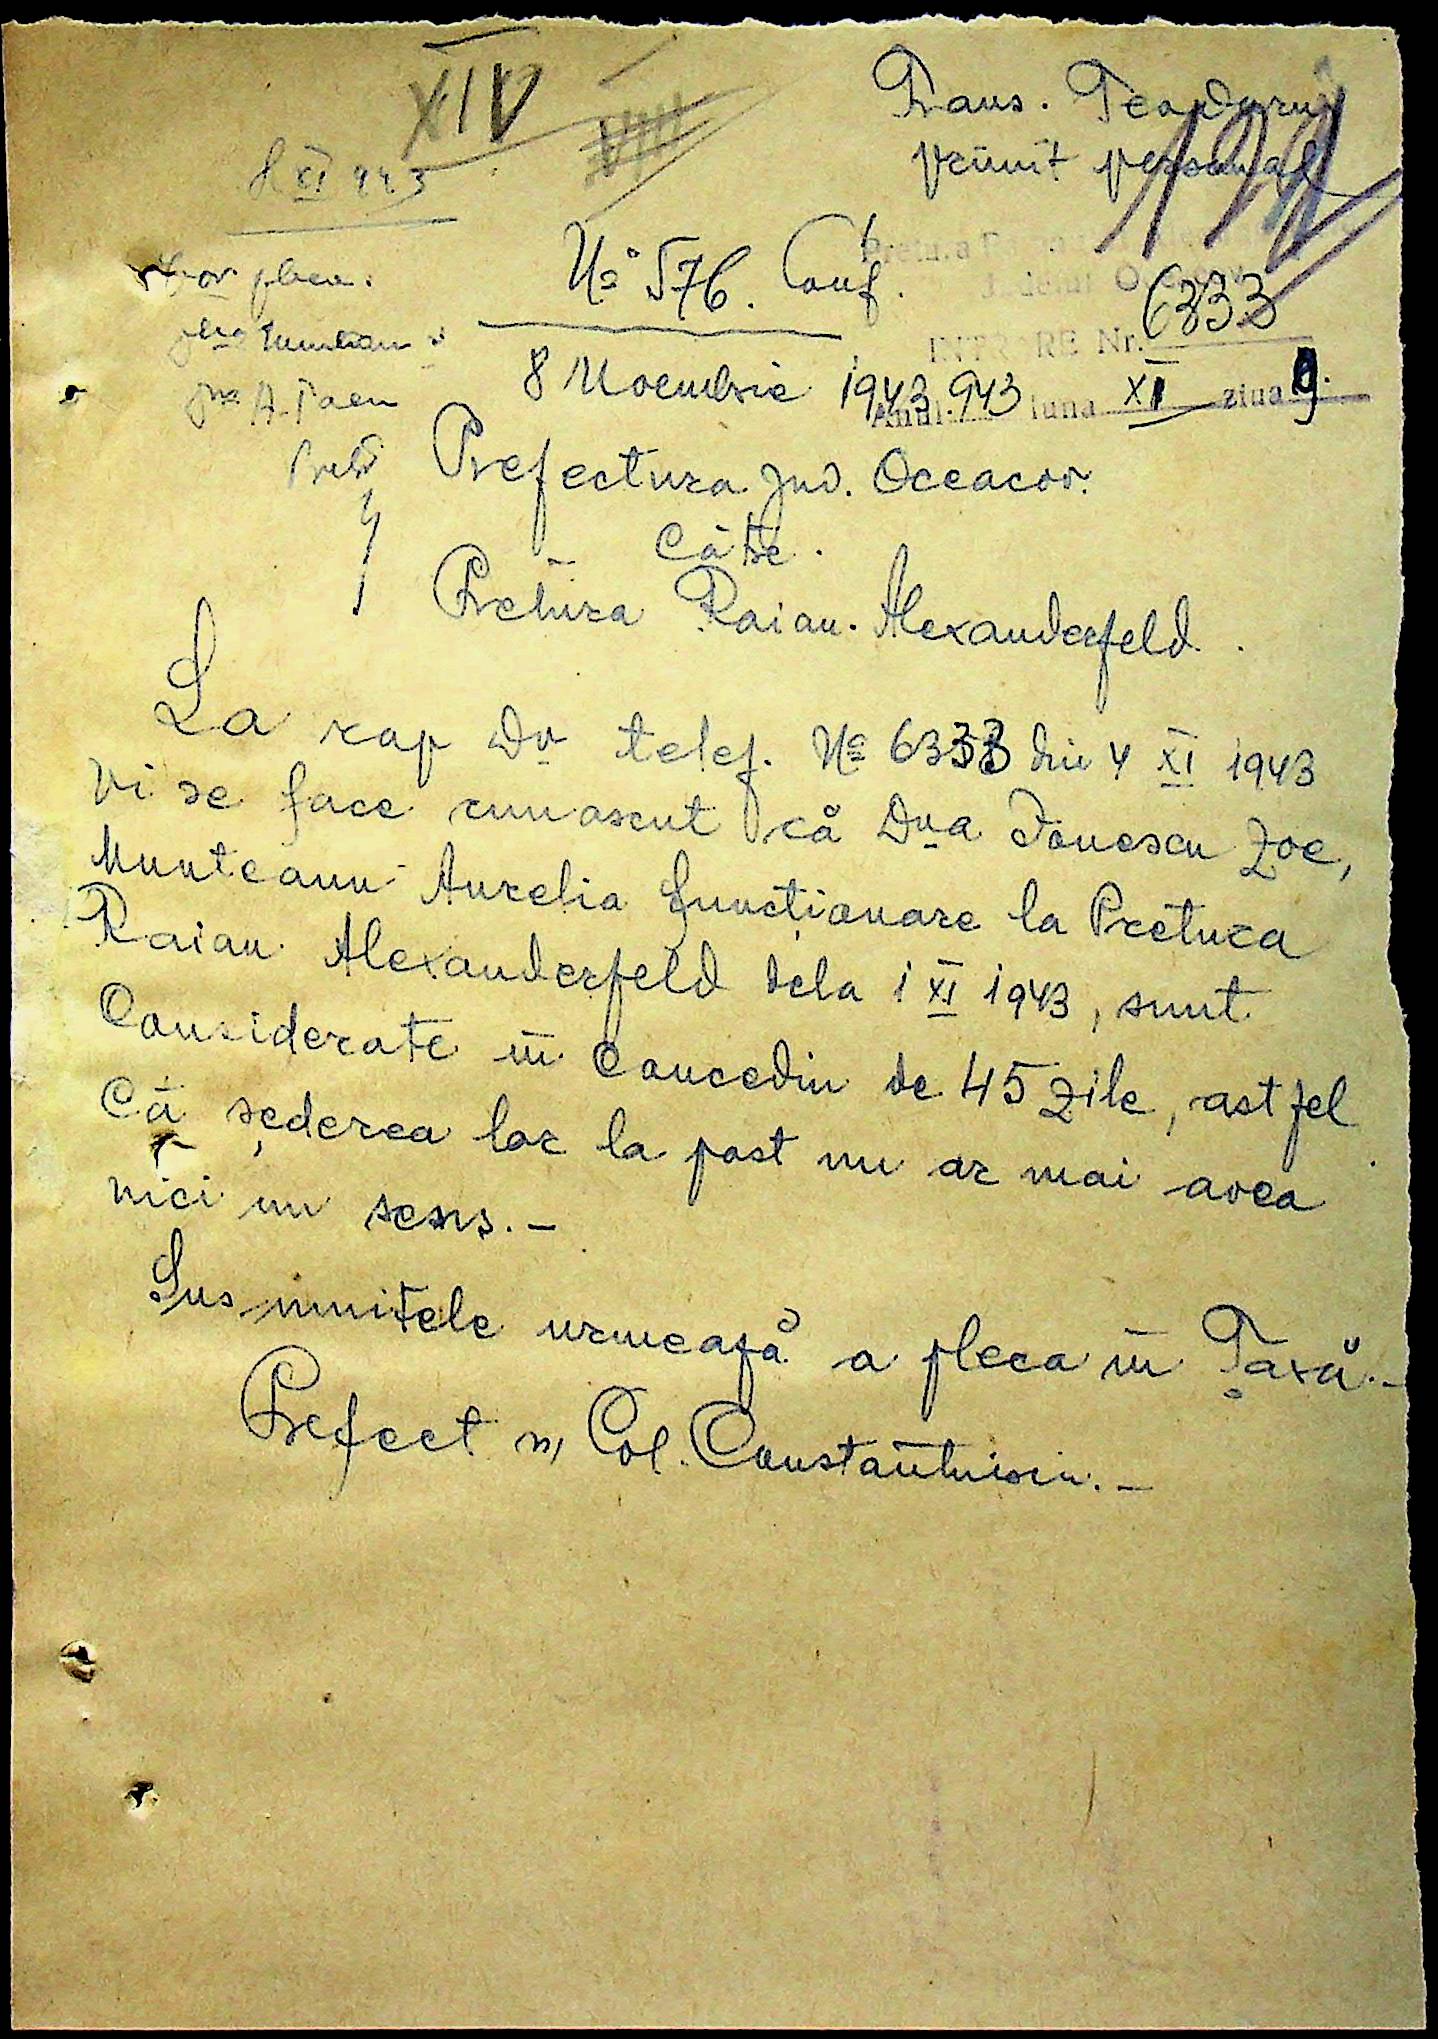 XIV
Trans. Teodoru
primit personal
8 XI 943
Nº 576. Conf.
Pretura
Județul O
INTRARE Nr. 6333
8 Noembrie 1943
Anul 943 luna XI ziua 9.
vor pleca.
Prefectura Jud. Oceacov.
Către.
Pretura Raion. Alexanderfeld.
La rap Dv telef. Nº 6333 din 4 XI 1943
vi se face cunoscut că Dna Ionescu Zoe,
Munteanu Aurelia funcționare la Pretura
Raion Alexanderfeld dela 1 XI 1943, sunt
Considerate în Concediu de 45 zile, astfel
că șederea lor la post nu ar mai avea
nici un sens. –
Sus numitele urmează a pleca în Țară. –
Prefect ss Col. Constantinescu. –